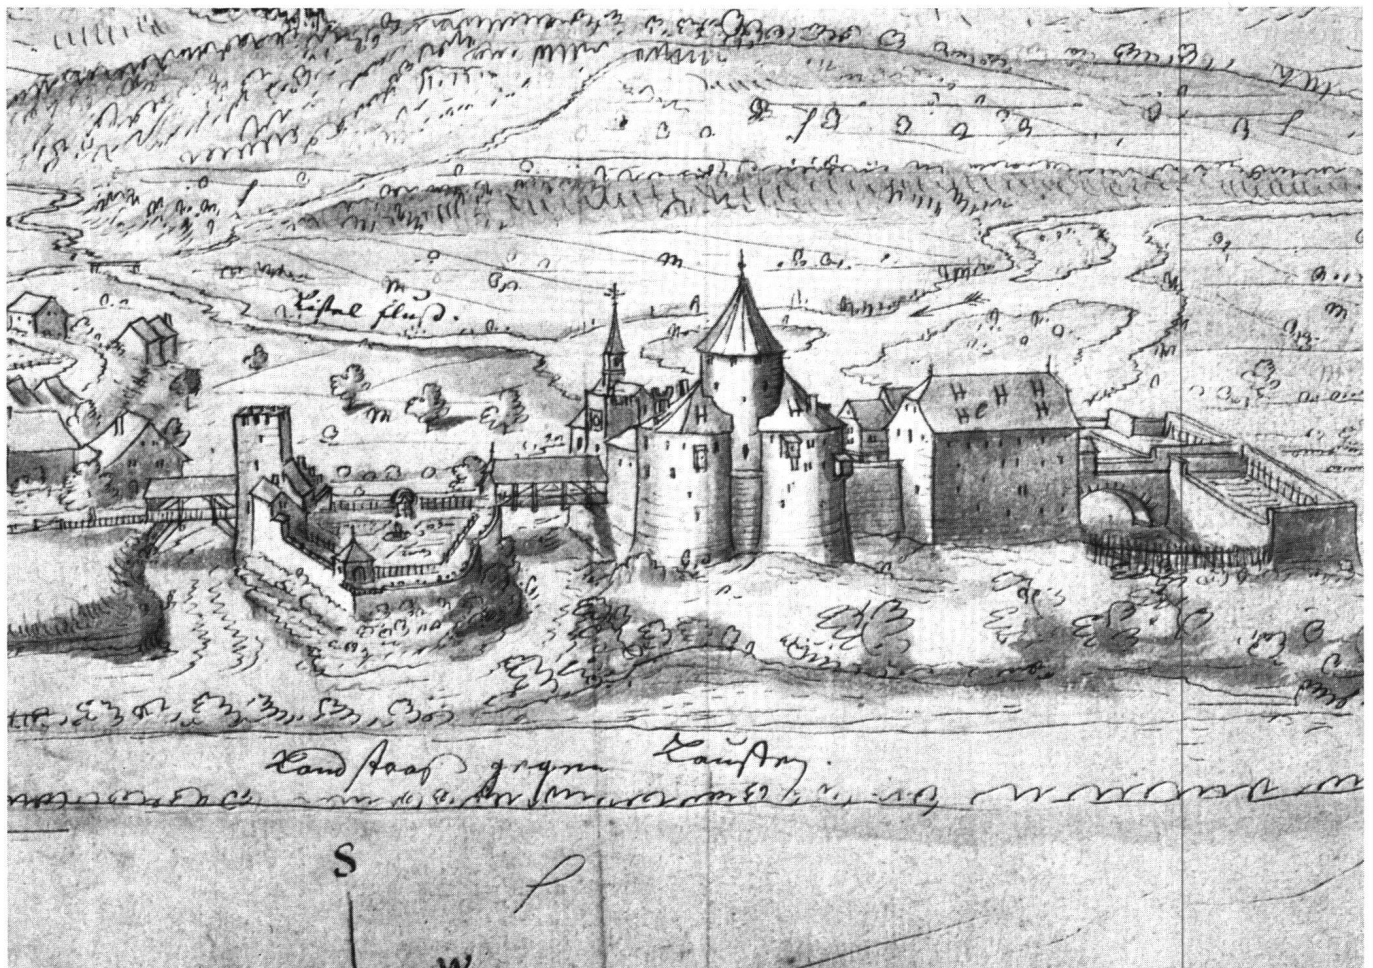 fluß.
Landstraas gegen Lauffen.
S
W